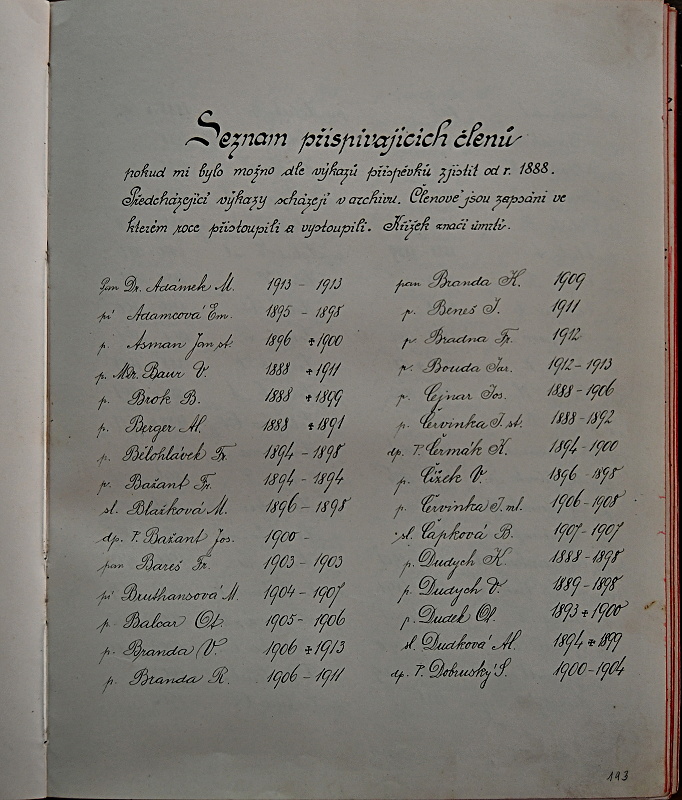 Seznam přispívajících členů
pokud mi bylo možno dle výkazů příspěvků zjistit od r. 1888.
Předcházející výkazy scházejí v archivu. Členové jsou zapsáni ve
kterém roce přistoupili a vystoupili. Křížek značí úmrtí.
Pan Dr. Adámek M. 1913 - 1913
pí Adamcová Em. 1895 - 1898
p. Asman Jan st. 1896 +1900
p. MDr. Baur V. 1888 +1911
p. Brok B. 1888 +1899
p. Berger Al. 1888 +1891
p. Bělohlávek Fr. 1894 - 1898
p. Bažant Fr. 1894 - 1894
sl. Blažková M. 1896 - 1898
dp. P. Bažant Jos. 1900 -
pan Bareš Fr. 1903 - 1903
pí Bruthansová M. 1904 - 1907
p. Balcar Ot. 1905 - 1906
p. Branda V. 1906 +1913
p. Branda R. 1906 - 1911
pan Branda K. 1909
p. Beneš J. 1911
p. Bradna Fr. 1912
p. Bouda Jar. 1912 - 1913
p. Cejnar Jos. 1888 - 1906
p. Červinka J. st. 1888 - 1892
dp. P. Čermák K. 1894 - 1900
p. Čížek V. 1896 - 1898
p. Červinka J. ml. 1906 - 1908
sl. Čapková B. 1907 - 1907
p. Dudych K. 1888 - 1898
p. Dudych V. 1889 - 1898
p. Dudek Ot. 1893 +1900
sl. Dudková Al. 1894 +1899
dp. P. Dobruský S. 1900 - 1904
193